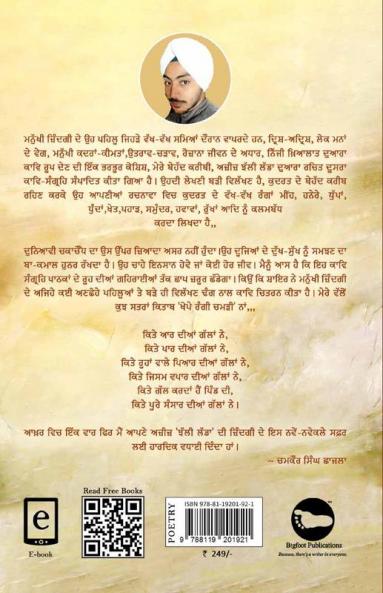 ਮਨੁੱਖੀ ਜ਼ਿੰਦਗੀ ਦੇ ਉਹ ਪਹਿਲੂ ਜਿਹੜੇ ਵੱਖ-ਵੱਖ ਸਮਿਆਂ ਦੌਰਾਨ ਵਾਪਰਦੇ ਹਨ, ਦ੍ਰਿਸ਼-ਅਦ੍ਰਿਸ਼, ਲੋਕ ਮਨਾਂ
ਦੇ ਵੇਗ, ਮਨੁੱਖੀ ਕਦਰਾਂ-ਕੀਮਤਾਂ,ਉਤਰਾਵ-ਚੜਾਵ, ਰੋਜ਼ਾਨਾ ਜੀਵਨ ਦੇ ਅਧਾਰ, ਨਿੱਜੀ ਖ਼ਿਆਲਾਤ ਦੁਆਰਾ
ਕਾਵਿ ਰੂਪ ਦੇਣ ਦੀ ਇੱਕ ਭਰਭੂਰ ਕੋਸ਼ਿਸ਼, ਮੇਰੇ ਬੇਹੱਦ ਕਰੀਬੀ, ਅਜ਼ੀਜ਼ ਝੱਲੀ ਲੱਡਾ ਦੁਆਰਾ ਰਚਿਤ ਦੂਸਰਾ
ਕਾਵਿ-ਸੰਗ੍ਰਹਿ ਸੰਪਾਦਿਤ ਕੀਤਾ ਗਿਆ ਹੈ। ਉਹਦੀ ਲੇਖਣੀ ਬੜੀ ਵਿਲੱਖਣ ਹੈ, ਕੁਦਰਤ ਦੇ ਬੇਹੱਦ ਕਰੀਬ
ਰਹਿਣ ਕਰਕੇ ਉਹ ਆਪਣੀਆਂ ਰਚਨਾਵਾਂ ਵਿਚ ਕੁਦਰਤ ਦੇ ਵੱਖ-ਵੱਖ ਰੰਗਾਂ ਮੀਂਹ, ਹਨੇਰੇ, ਧੁੱਪਾਂ,
ਧੁੰਦਾਂ,ਖੇਤ,ਪਹਾੜ, ਸਮੁੰਦਰ, ਹਵਾਵਾਂ, ਰੁੱਖਾਂ ਆਦਿ ਨੂੰ ਕਲਮਬੱਧ
ਕਰਦਾ ਲਿਖਦਾ ਹੈ,,
ਦੁਨਿਆਵੀ ਚਕਾਚੌਂਧ ਦਾ ਉਸ ਉੱਪਰ ਜ਼ਿਆਦਾ ਅਸਰ ਨਹੀਂ ਹੁੰਦਾ।ਉਹ ਦੂਜਿਆਂ ਦੇ ਦੁੱਖ-ਸੁੱਖ ਨੂੰ ਸਮਝਣ ਦਾ
ਬਾ-ਕਮਾਲ ਹੁਨਰ ਰੱਖਦਾ ਹੈ। ਉਹ ਚਾਹੇ ਇਨਸਾਨ ਹੋਵੇ ਜਾਂ ਕੋਈ ਹੋਰ ਜੀਵ। ਮੈਨੂੰ ਆਸ ਹੈ ਕਿ ਇਹ ਕਾਵਿ
ਸੰਗ੍ਰਹਿ ਪਾਠਕਾਂ ਦੇ ਰੂਹ ਦੀਆਂ ਗਹਿਰਾਈਆਂ ਤੱਕ ਛਾਪ ਜ਼ਰੂਰ ਛੱਡੇਗਾ। ਕਿਉਂ ਕਿ ਸ਼ਾਇਰ ਨੇ ਮਨੁੱਖੀ ਜ਼ਿੰਦਗੀ
ਦੇ ਅਜਿਹੇ ਕਈ ਅਣਛੋਹੇ ਪਹਿਲੂਆਂ ਤੇ ਬੜੇ ਹੀ ਵਿਲੱਖਣ ਢੰਗ ਨਾਲ ਕਾਵਿ ਚਿਤਰਨ ਕੀਤਾ ਹੈ। ਮੇਰੇ ਵੱਲੋਂ
ਕੁਝ ਸਤਰਾਂ ਕਿਤਾਬ 'ਖੋਪੇ ਰੰਗੀ ਚਮੜੀ' ਨਾਂ,,,
ਕਿਤੇ ਆਰ ਦੀਆਂ ਗੱਲਾਂ ਨੇ,
ਕਿਤੇ ਪਾਰ ਦੀਆਂ ਗੱਲਾਂ ਨੇ,
ਕਿਤੇ ਰੂਹਾਂ ਵਾਲੇ ਪਿਆਰ ਦੀਆਂ ਗੱਲਾਂ ਨੇ,
ਕਿਤੇ ਜਿਸਮ ਵਪਾਰ ਦੀਆਂ ਗੱਲਾਂ ਨੇ,
ਕਿਤੇ ਗੱਲ ਕਰਦਾਂ ਹੈਂ ਪਿੰਡ ਦੀ,
ਕਿਤੇ ਪੂਰੇ ਸੰਸਾਰ ਦੀਆਂ ਗੱਲਾਂ ਨੇ।
ਆਖ਼ਰ ਵਿਚ ਇੱਕ ਵਾਰ ਫਿਰ ਮੈਂ ਆਪਣੇ ਅਜ਼ੀਜ਼ 'ਝੱਲੀ ਲੱਡਾ' ਦੀ ਜ਼ਿੰਦਗੀ ਦੇ ਇਸ ਨਵੇਂ-ਨਵੇਕਲੇ ਸਫ਼ਰ
ਲਈ ਹਾਰਦਿਕ ਵਧਾਈ ਦਿੰਦਾ ਹਾਂ।
~ ਚਮਕੌਰ ਸਿੰਘ ਛਾਜਲਾ
e
E-book
Read Free Books
POETRY
ISBN 978-81-19201-92-1
9 788119 201921
₹ 249/-
Bigfoot Publications
Because, there's a writer in everyone.